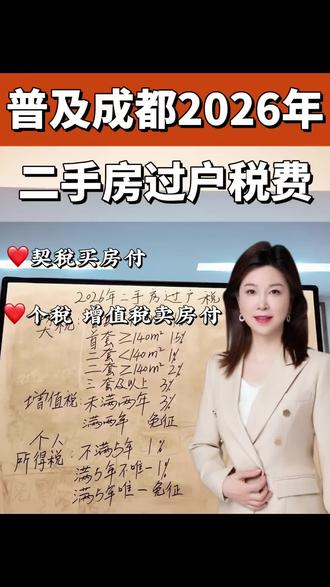 普及成都2026年
二手房过户税费
❤️契税买房付
2026年二手房过户税
❤️个税 增值税卖房付
首套≥140m² 1.5%
二套<140m² 1%
二套≥140m² 2%
三套及以上 3%
增值税: 未满两年 3%
满两年 免征
个人
所得税: 不满5年 1%
满5年不唯一1%
满5年唯一免征